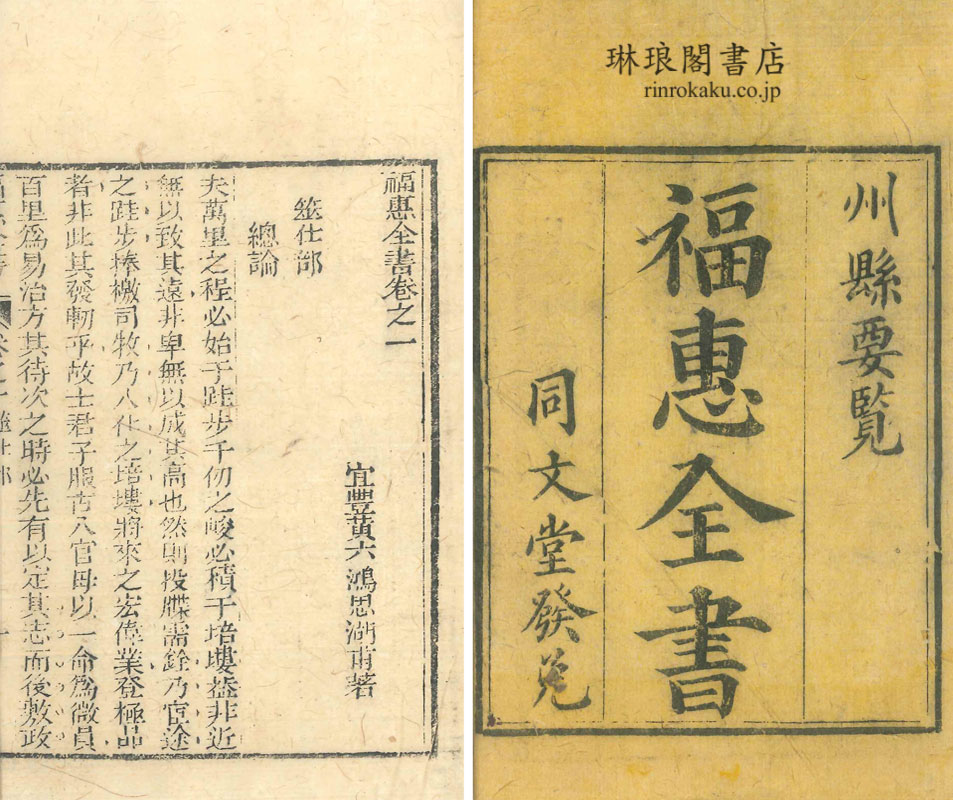 琳琅閣書店
rinrokaku.co.jp
州縣要覧
福惠全書
同文堂發兌
福惠全書卷之一
宜豐黃六鴻思湖甫著
筮仕部
總論
夫萬里之程必始于跬步千仞之峻必積于培塿蓋非近
無以致其遠非卑無以成其高也然則投牒需銓乃宦途
之跬步捧檄司牧乃入仕之培塿將來之宏偉業登極品
者非此其發軔乎故士君子服古入官毋以一命爲微員
百里爲易治方其待次之時必先有以定其志而後敷政